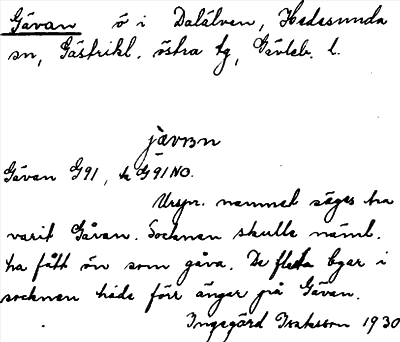 Gävan ö i Dalälven, Hedesunda
sn, Gästrikl. östra tg, Gävleb. l.
jävan
Gävan G91, G91NO.
Urspr. namnet säges ha
varit Gåvan. Socknen skulle näml.
ha fått ön som gåva. De flesta byar i
socknen hade förr ängar på Gävan.
Ingegärd Isaksson 1930